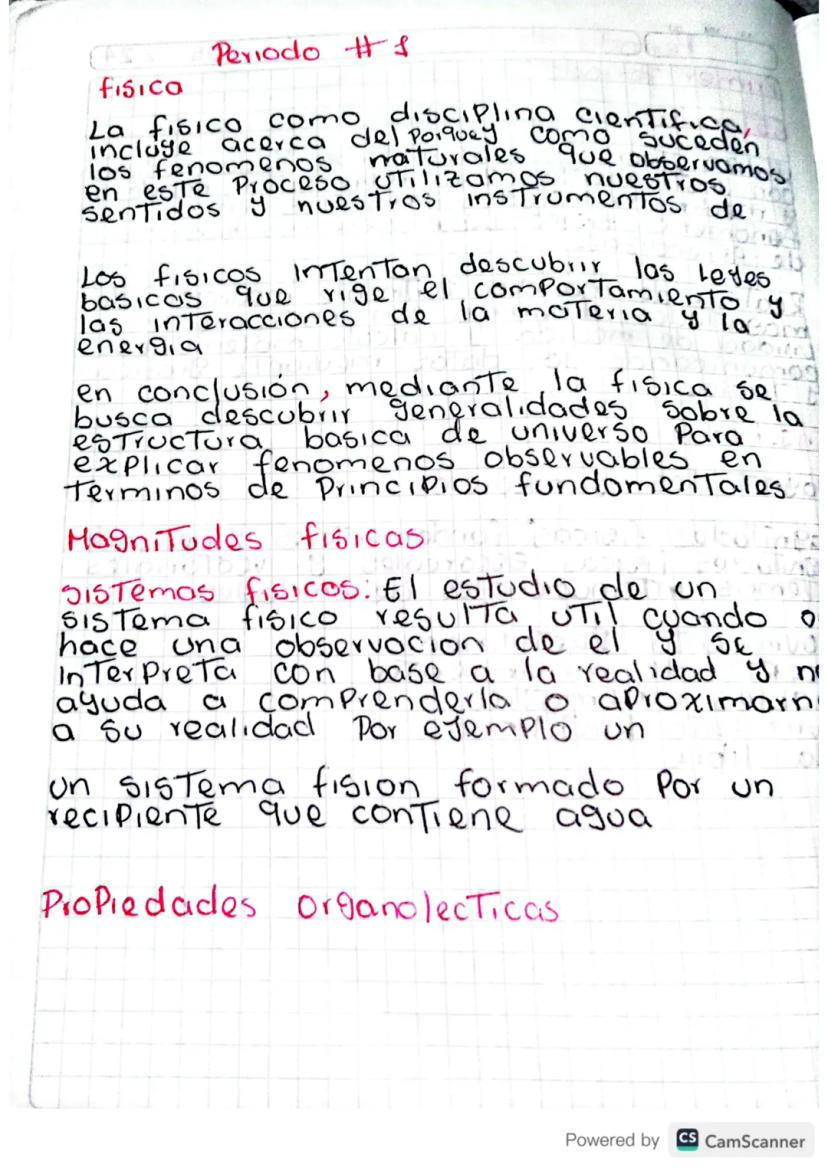 Periodo #1
fisica
La fisico como disciplina cientifica,
incluye acerca del porquey como suceden
los fenomenos naturales que observamos
en este proceso utilizamos nuestros
sentidos y nuestros instrumentos de
Los fisicos intentan descubrir las leyes
basicas que rige el comportamiento y
las interacciones de la materia y la
energia
en conclusión, mediante la fisica se
busca descubrir generalidades sobre la
estructura basica de universo para
explicar fenomenos observables en
terminos de principios fundamentales
Magnitudes fisicas
sistemas fisicos: El estudio de un
sistema fisico resulta util cuando
hace una observacion de el y se
interpreta con base a la realidad y
ayuda a comprenderla o aproximarn
a su realidad por ejemplo un
un sistema fision formado por un
recipiente que contiene agua
Propiedades organolecticas
Powered by CS CamScanner